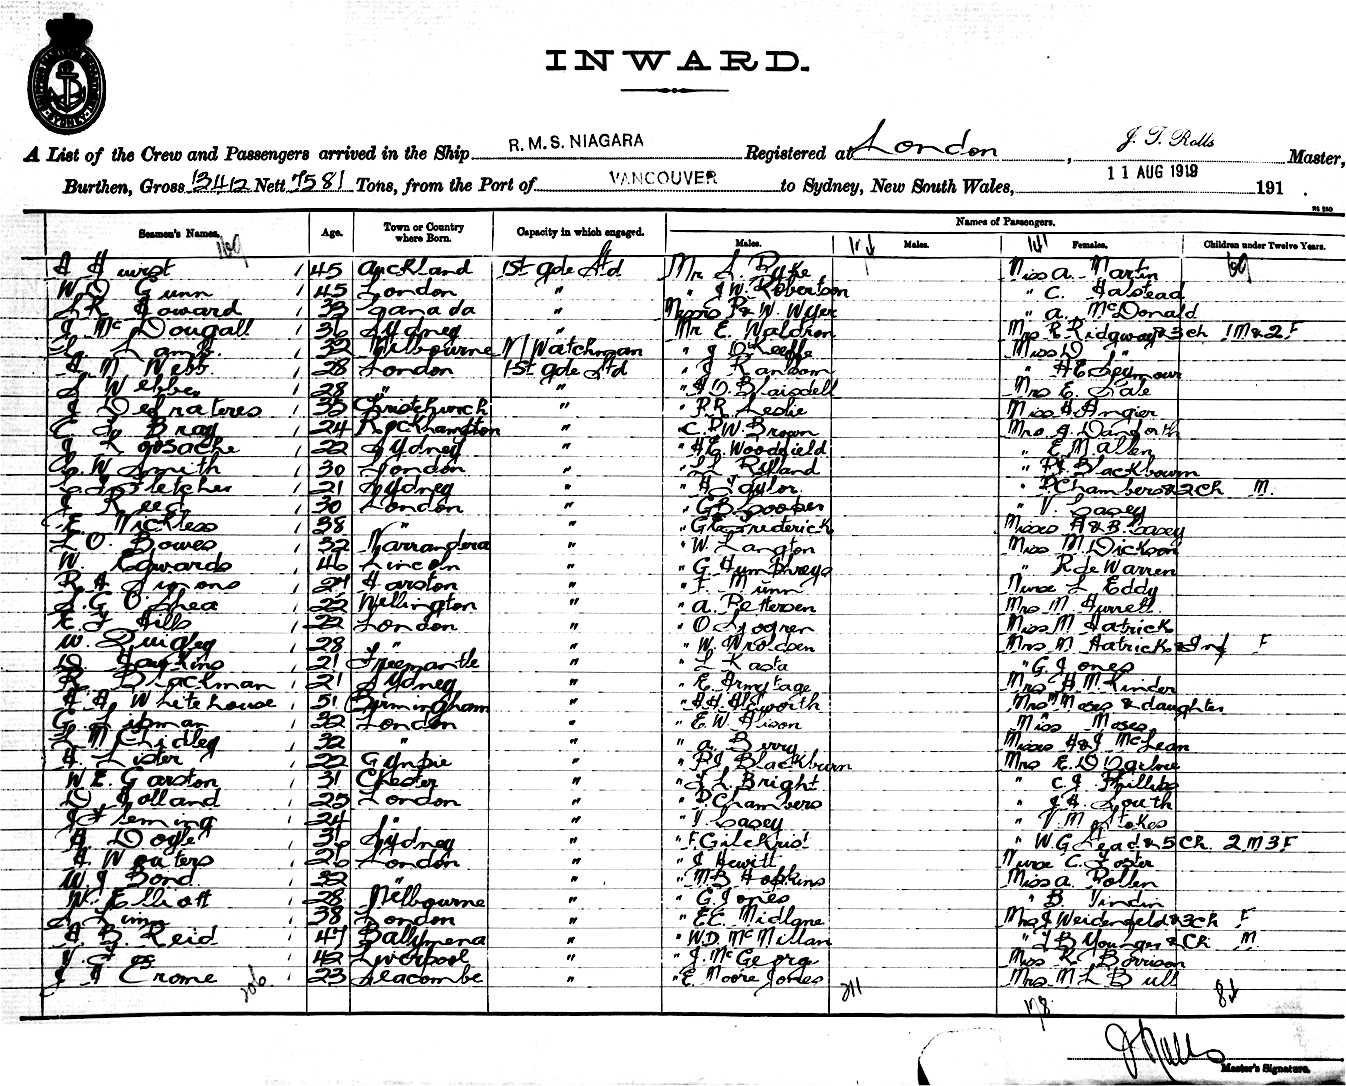 INWARD.
A List of the Crew and Passengers arrived in the Ship R.M.S. NIAGARA Registered at London, J. T. Rolls Master,
Burthen, Gross 13412 Nett 7581 Tons, from the Port of VANCOUVER to Sydney, New South Wales, 11 AUG 1919 191 .
Names of Passengers.
Seamen's Names. Age. Town or Country where Born. Capacity in which engaged. Males. Males. Females. Children under Twelve Years.
A Hurst 1 45 Auckland 1st gde Std Mr L. Pyke Miss A. Martin
W. D Gunn 1 45 London " " J W. Robertson " C. Halstead
Howard 1 33 Canada " Messrs P & W. Wyer " A. McDonald
J McDougall 1 36 Sydney " Mr E. Waldron Mrs R Ridgway & 3ch 1M & 2F
Lamb 1 32 Melbourne N/Watchman " J O'Keeffe Miss D "
M Webb 1 28 London 1st gde Std " J Ransom " H E Seymour
L Webber 1 28 " " " Blaisdell Mrs E. Gale
J 1 33 Christchurch " " R.R. Leslie Miss H Angier
C Bray 1 24 Rockhampton " " C. P. W Brown Mrs J Danforth
J R Gosache 1 22 Sydney " " H.G. Woodfield " E. M Allen
W Smith 1 30 London " " Rylland " P.J. Blackburn
Fletcher 1 21 Sydney " " H Taylor " P. Chambers & 2 Ch M.
J Reed 1 30 London " " G B Cooper " V. Casey
E. Nickless 1 38 " " " G E Frederick Misses A & B Casey
L O. Bowes 1 32 Narrandera " " W. Langton Miss M. Dickson
W. Edwards 1 46 Lincoln " " G Humphreys " R de Warren
R H Simons 1 24 Harston " " F. Munn Nurse L Eddy
G O'Shea 1 22 Wellington " " A. Pettersen Mrs M Hurrell
E. J Hills 1 22 London " " O Sjogren Miss M Hatrick
W Quigley 1 28 " " " W. Wroldsen Mrs M Hatrick & Inf F
D. Hawkins 1 21 Freemantle " " L Kasta " G. J Jones
R. Blackman 1 21 Sydney " " E Armytage Mrs H M Kinder
A H Whitehouse 1 51 Birmingham " " H H Haworth Mrs M Moses & daughter
G. Lipman 1 32 London " " E W Alison Miss Moses
M Chidley 1 32 " " " A. Berry Misses H & J McLean
A. Lister 1 22 Gympie " " P J Blackburn Mrs E. D
W. E. Garston 1 31 Chester " " L. Bright " C J Phillips
D Holland 1 25 London " " P Chambers " J H. South
J Fleming 1 24 " " " V Casey " V. M Stokes
A Doyle 1 31 Sydney " " F. Gilchrist " W. G Stead & 5 Ch. 2 M 3 F
H. Waters 1 26 London " " J Hewitt Nurse C. Foster
W J Bond 1 32 " " " M B Hopkins Miss A. Pollen
W. Elliott 1 28 Melbourne " " G. Jones " B.
L Finn 1 38 London " " E.C. Midlane Mrs J Weidenfeld & 3 ch F
A B. Reid 1 47 Ballymena " " W.D. McMillan " J B Younger & Ch M
1 42 Liverpool " " J. McGeorge Miss R Borrison
J J Crome 1 23 Seacombe " " E. Moore Jones Mrs M L Bull
206 211 178 84
J Rolls
Master's Signature.